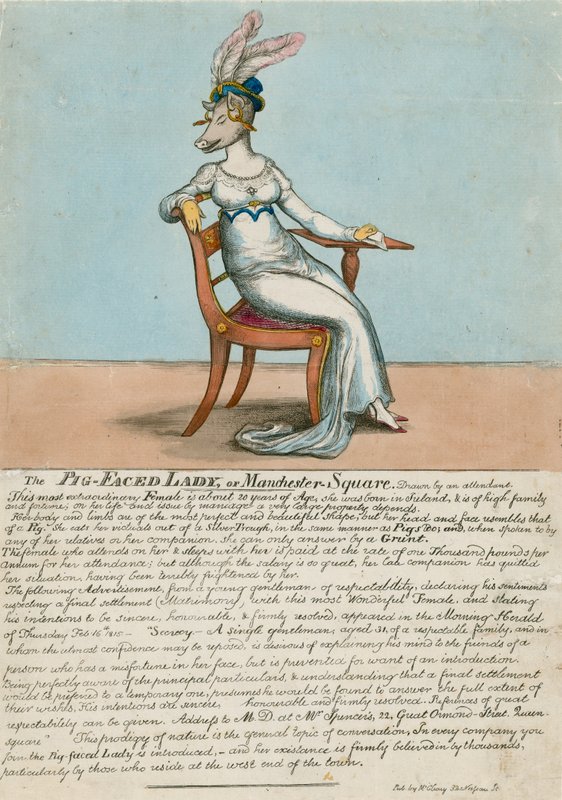 The PIG-FACED LADY, or Manchester-Square. Drawn by an attendant.
This most extraordinary Female is about 20 years of Age, she was born in Ireland, & is of high family
and fortune; on her life and issue by marriage a very large property depends.
Her body and limbs are of the most perfect and beautiful Shape, but her head and face resembles that
of a Pig. She eats her victuals out of a Silver Trough, in the same manner as Pigs do; and, when spoken to by
any of her relatives or her companion, she can only answer by a Grunt.
The female who attends on her & sleeps with her is paid at the rate of one Thousand pounds per
Annum for her attendance; but although the salary is so great, her late companion has quitted
her situation, having been terribly frightened by her.
The following Advertisement, from a young gentleman of respectability, declaring his sentiments
respecting a final settlement (Matrimony), with this most Wonderful Female, and Stating
his intentions to be sincere, honourable, & firmly resolved, appeared in the Morning Herald
of Thursday Feb 16th 1815 – "Secrecy – A single gentleman, aged 31, of a respectable family, and in
whom the utmost confidence may be reposed, is desirous of explaining his mind to the friends of a
person who has a misfortune in her face, but is prevented for want of an introduction.
Being perfectly aware of the principal particulars, & understanding that a final settlement
would be preferred to a temporary one, presumes he would be found to answer the full extent of
their wishes, His intentions are sincere, honourable and firmly resolved. References of great
respectability can be given. Address to M. D. at Mr Spencer's, 22, Great Ormond-Street. Queen-
square" This prodigy of nature is the general topic of conversation, In every company you
join the Pig-faced Lady is introduced, – and her existance is firmly believed in by thousands,
particularly by those who reside at the west end of the town.
Pub by McCleary 32 Nassau St